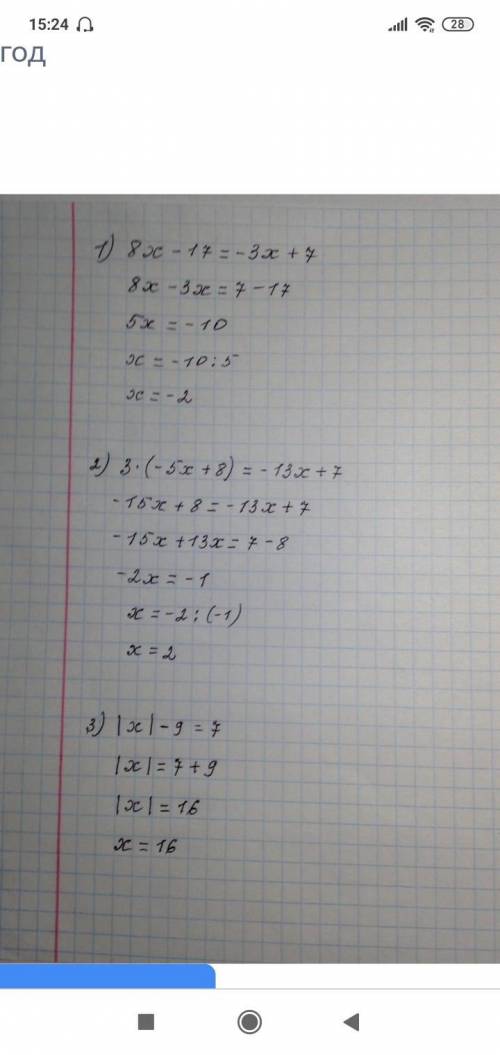 15:24 28
год
1) 8x - 17 = -3x + 7
8x - 3x = 7 - 17
5x = -10
x = -10 : 5
x = -2
2) 3 · (-5x + 8) = -13x + 7
-15x + 8 = -13x + 7
-15x + 13x = 7 - 8
-2x = -1
x = -2 : (-1)
x = 2
3) |x| - 9 = 7
|x| = 7 + 9
|x| = 16
x = 16